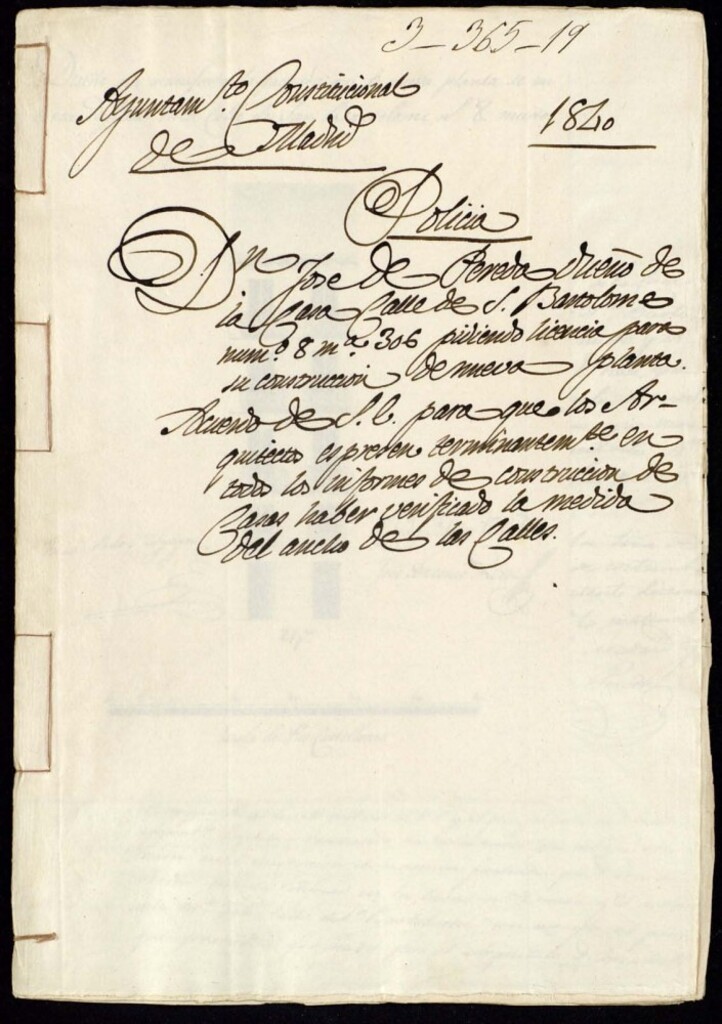 3-365-19
Ayuntam.to Constitucional
de Madrid
1840
Policia
Dn Jose de Pereda dueño de
la Casa Calle de S. Bartolome
num.º 8 m.a 306 pidiendo licencia para
su construccion de nueva planta.
Acuerdo de S.E. para que los Ar-
quitectos espresen terminantem.te en
todos los informes de construccion de
Casas haber verificado la medida
del ancho de las Calles.